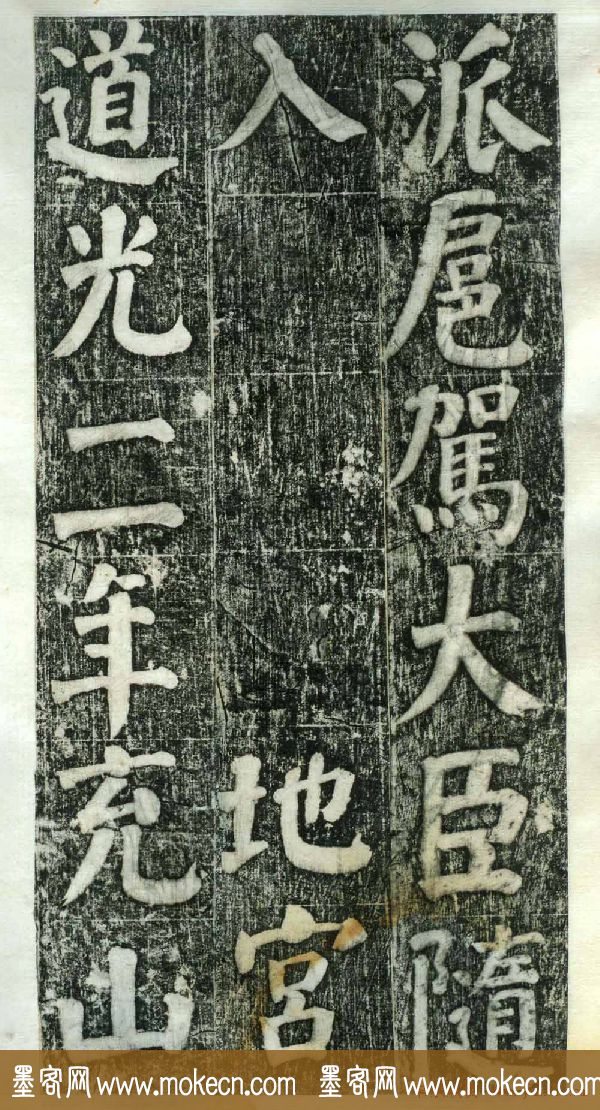 派扈駕大臣隨
入 地宮
道光二年充山
墨客网 www.mokecn.com 墨客网 www.mokecn.com